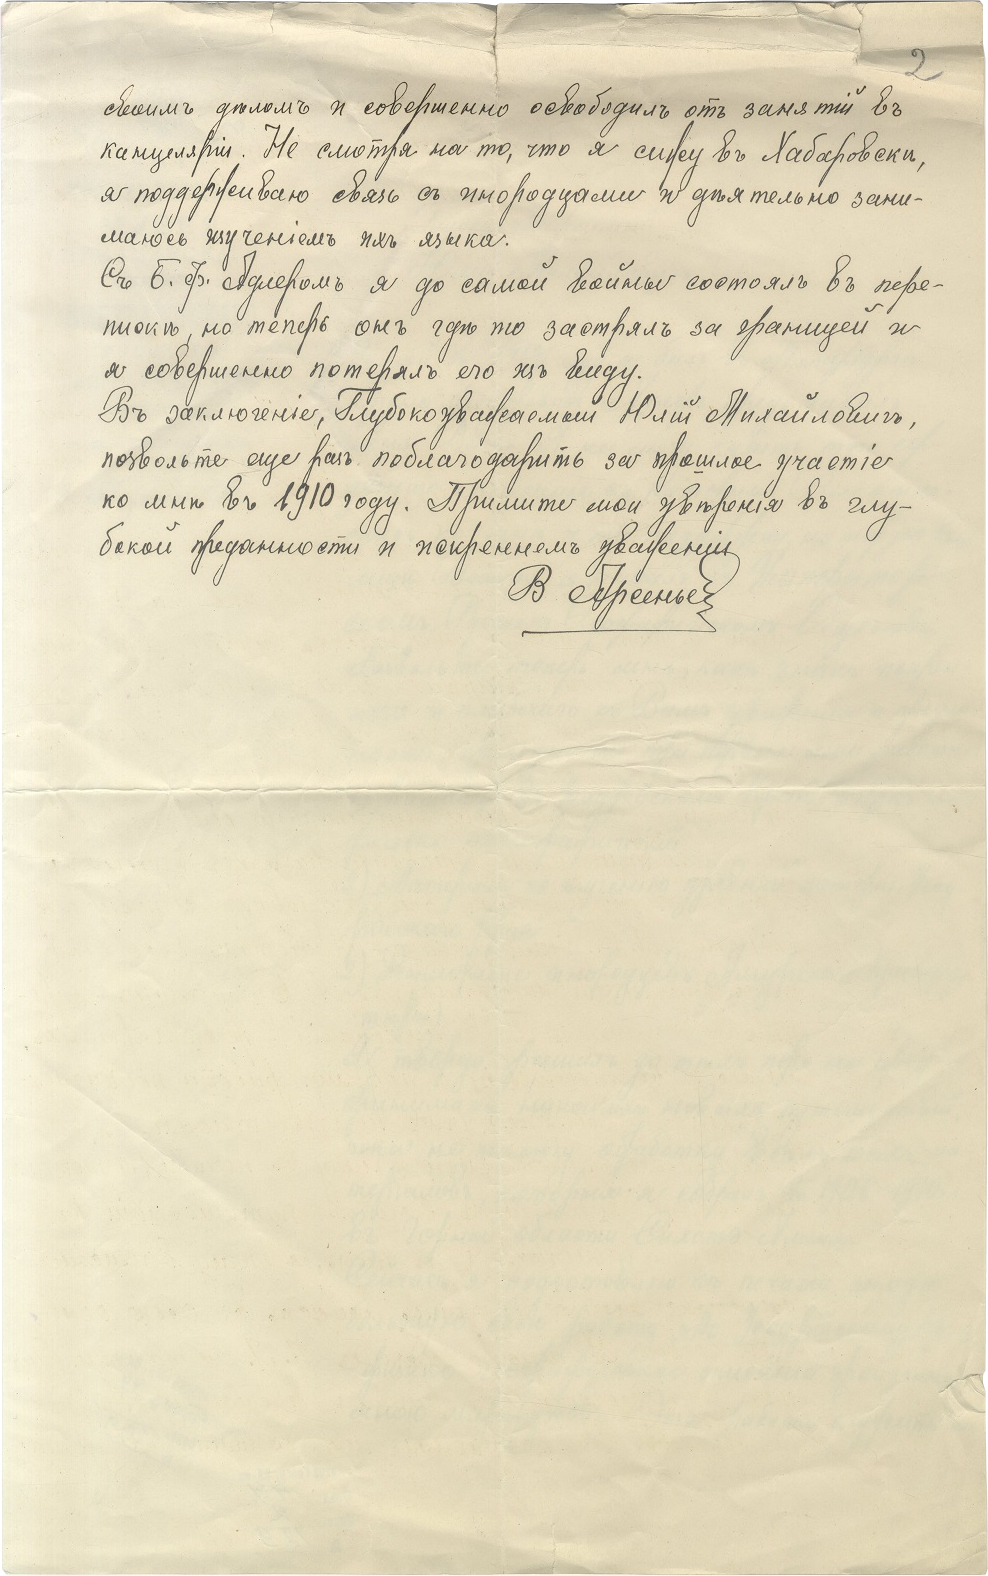 2
своимъ дѣломъ и совершенно освободилъ отъ занятій въ
канцеляріи. Не смотря на то, что я сижу въ Хабаровскѣ,
я поддерживаю связь съ инородцами и дѣятельно зани-
маюсь изученіемъ ихъ языка.
Съ Б. Ф. Адлеромъ я до самой войны состоялъ въ пере-
пискѣ, но теперь онъ гдѣ то застрялъ за границей и
я совершенно потерялъ его изъ виду.
Въ заключеніе, Глубокоуважаемый Юлій Михайловичъ,
позвольте еще разъ поблагодарить за прошлое участіе
ко мнѣ въ 1910 году. Примите мои увѣренія въ глу-
бокой преданности и искреннемъ уваженіи
В Арсеньев